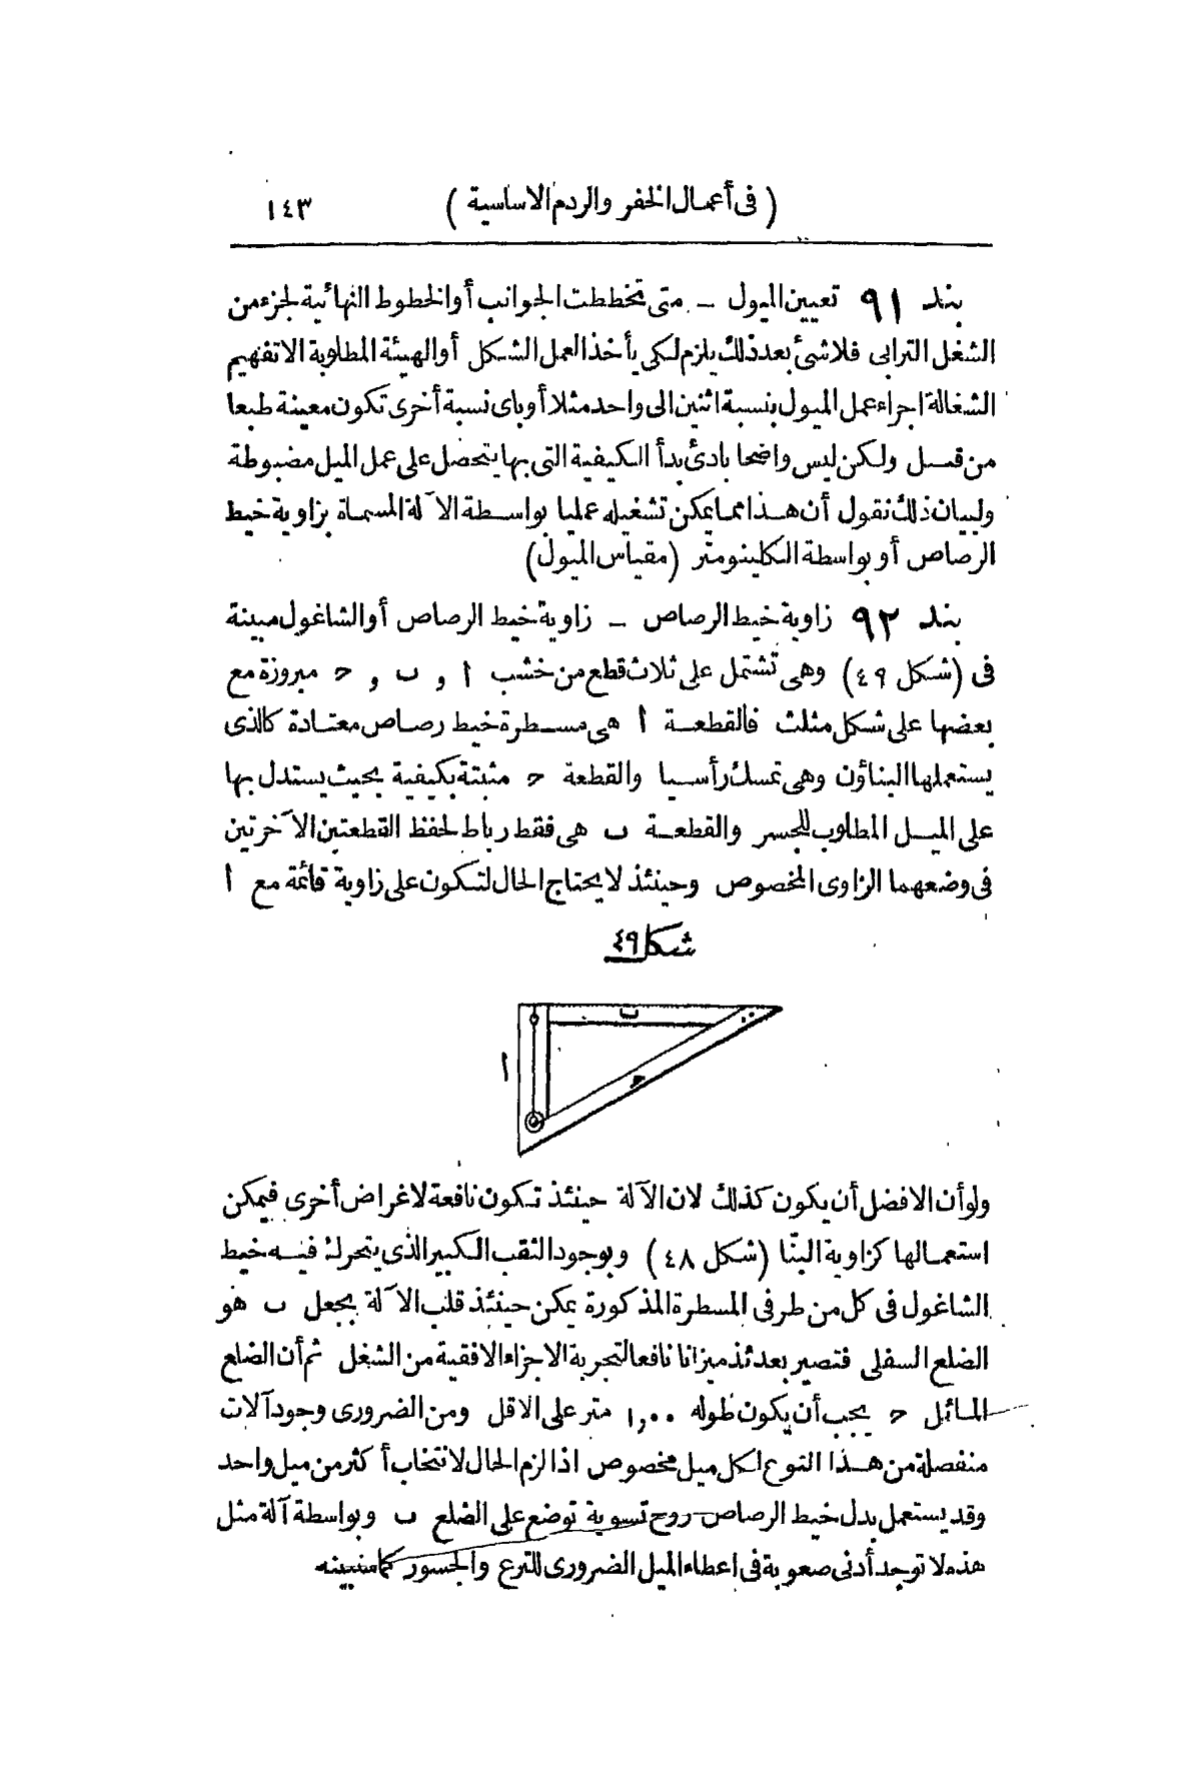 (فى أعمال الحفر والردم الاساسية) ١٤٣
بند ٩١ تعيين الميول – متى تخططت الجوانب أو الخطوط النهائية لجزء من
الشغل الترابى فلا شئ بعد ذلك يلزم لكى يأخذ العمل الشكل أو الهيئة المطلوبة الا تفهيم
الشغالة اجراء عمل الميول بنسبة اثنين الى واحد مثلا أو باى نسبة أخرى تكون معينة طبعا
من قبل ولكن ليس واضحا بادئ بدأ الكيفية التى بها يتحصل على عمل الميل مضبوطة
ولبيان ذلك نقول أن هذا مما يمكن تشغيله عمليا بواسطة الآلة المسماة بزاوية خيط
الرصاص أو بواسطة الكلينومتر (مقياس الميول)
بند ٩٢ زاوية خيط الرصاص – زاوية خيط الرصاص أو الشاغول مبينة
فى (شكل ٤٩) وهى تشتمل على ثلاث قطع من خشب ا و ب و ح مبروزة مع
بعضها على شكل مثلث فالقطعة ا هى مسطرة خيط رصاص معتادة كالذى
يستعملها البناؤن وهى تمسك رأسيا والقطعة ح مثبتة بكيفية بحيث يستدل بها
على الميل المطلوب للجسر والقطعة ب هى فقط رباط لحفظ القطعتين الآخرتين
فى وضعهما الزاوى المخصوص وحينئذ لا يحتاج الحال لتكون على زاوية قائمة مع ا
شكل ٤٩
ب
ا
ح
ولو أن الافضل أن يكون كذلك لان الآلة حينئذ تكون نافعة لاغراض أخرى فيمكن
استعمالها كزاوية البنّا (شكل ٤٨) وبوجود الثقب الكبير الذى يتحرك فيه خيط
الشاغول فى كل من طرفى المسطرة المذكورة يمكن حينئذ قلب الآلة بجعل ب هو
الضلع السفلى فتصير بعدئذ ميزانا نافعا لتجربة الاجزاء الافقية من الشغل ثم أن الضلع
المائل ح يجب أن يكون طوله ١,٠٠ متر على الاقل ومن الضرورى وجود آلات
منفصلة من هذا النوع لكل ميل مخصوص اذا لزم الحال لانتخاب أكثر من ميل واحد
وقد يستعمل بدل خيط الرصاص روح تسوية توضع على الضلع ب وبواسطة آلة مثل
هذه لا توجد أدنى صعوبة فى اعطاء الميل الضرورى للترع والجسور كما سنبينه